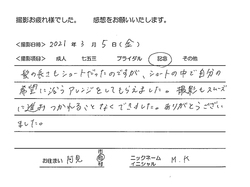 撮影お疲れ様でした。 感想をお願いいたします。
<撮影日時> 2021年 3月 5日(金)
<撮影項目> 成人 七五三 ブライダル 記念 その他
髪の長さもショートだったのですが、ショートの中で自分の
希望に沿うアレンジをしてもらえました。撮影もスムーズ
に進み つかれることなくできました。ありがとうござい
ました。
お住まい 阿見 ニックネーム イニシャル M.K